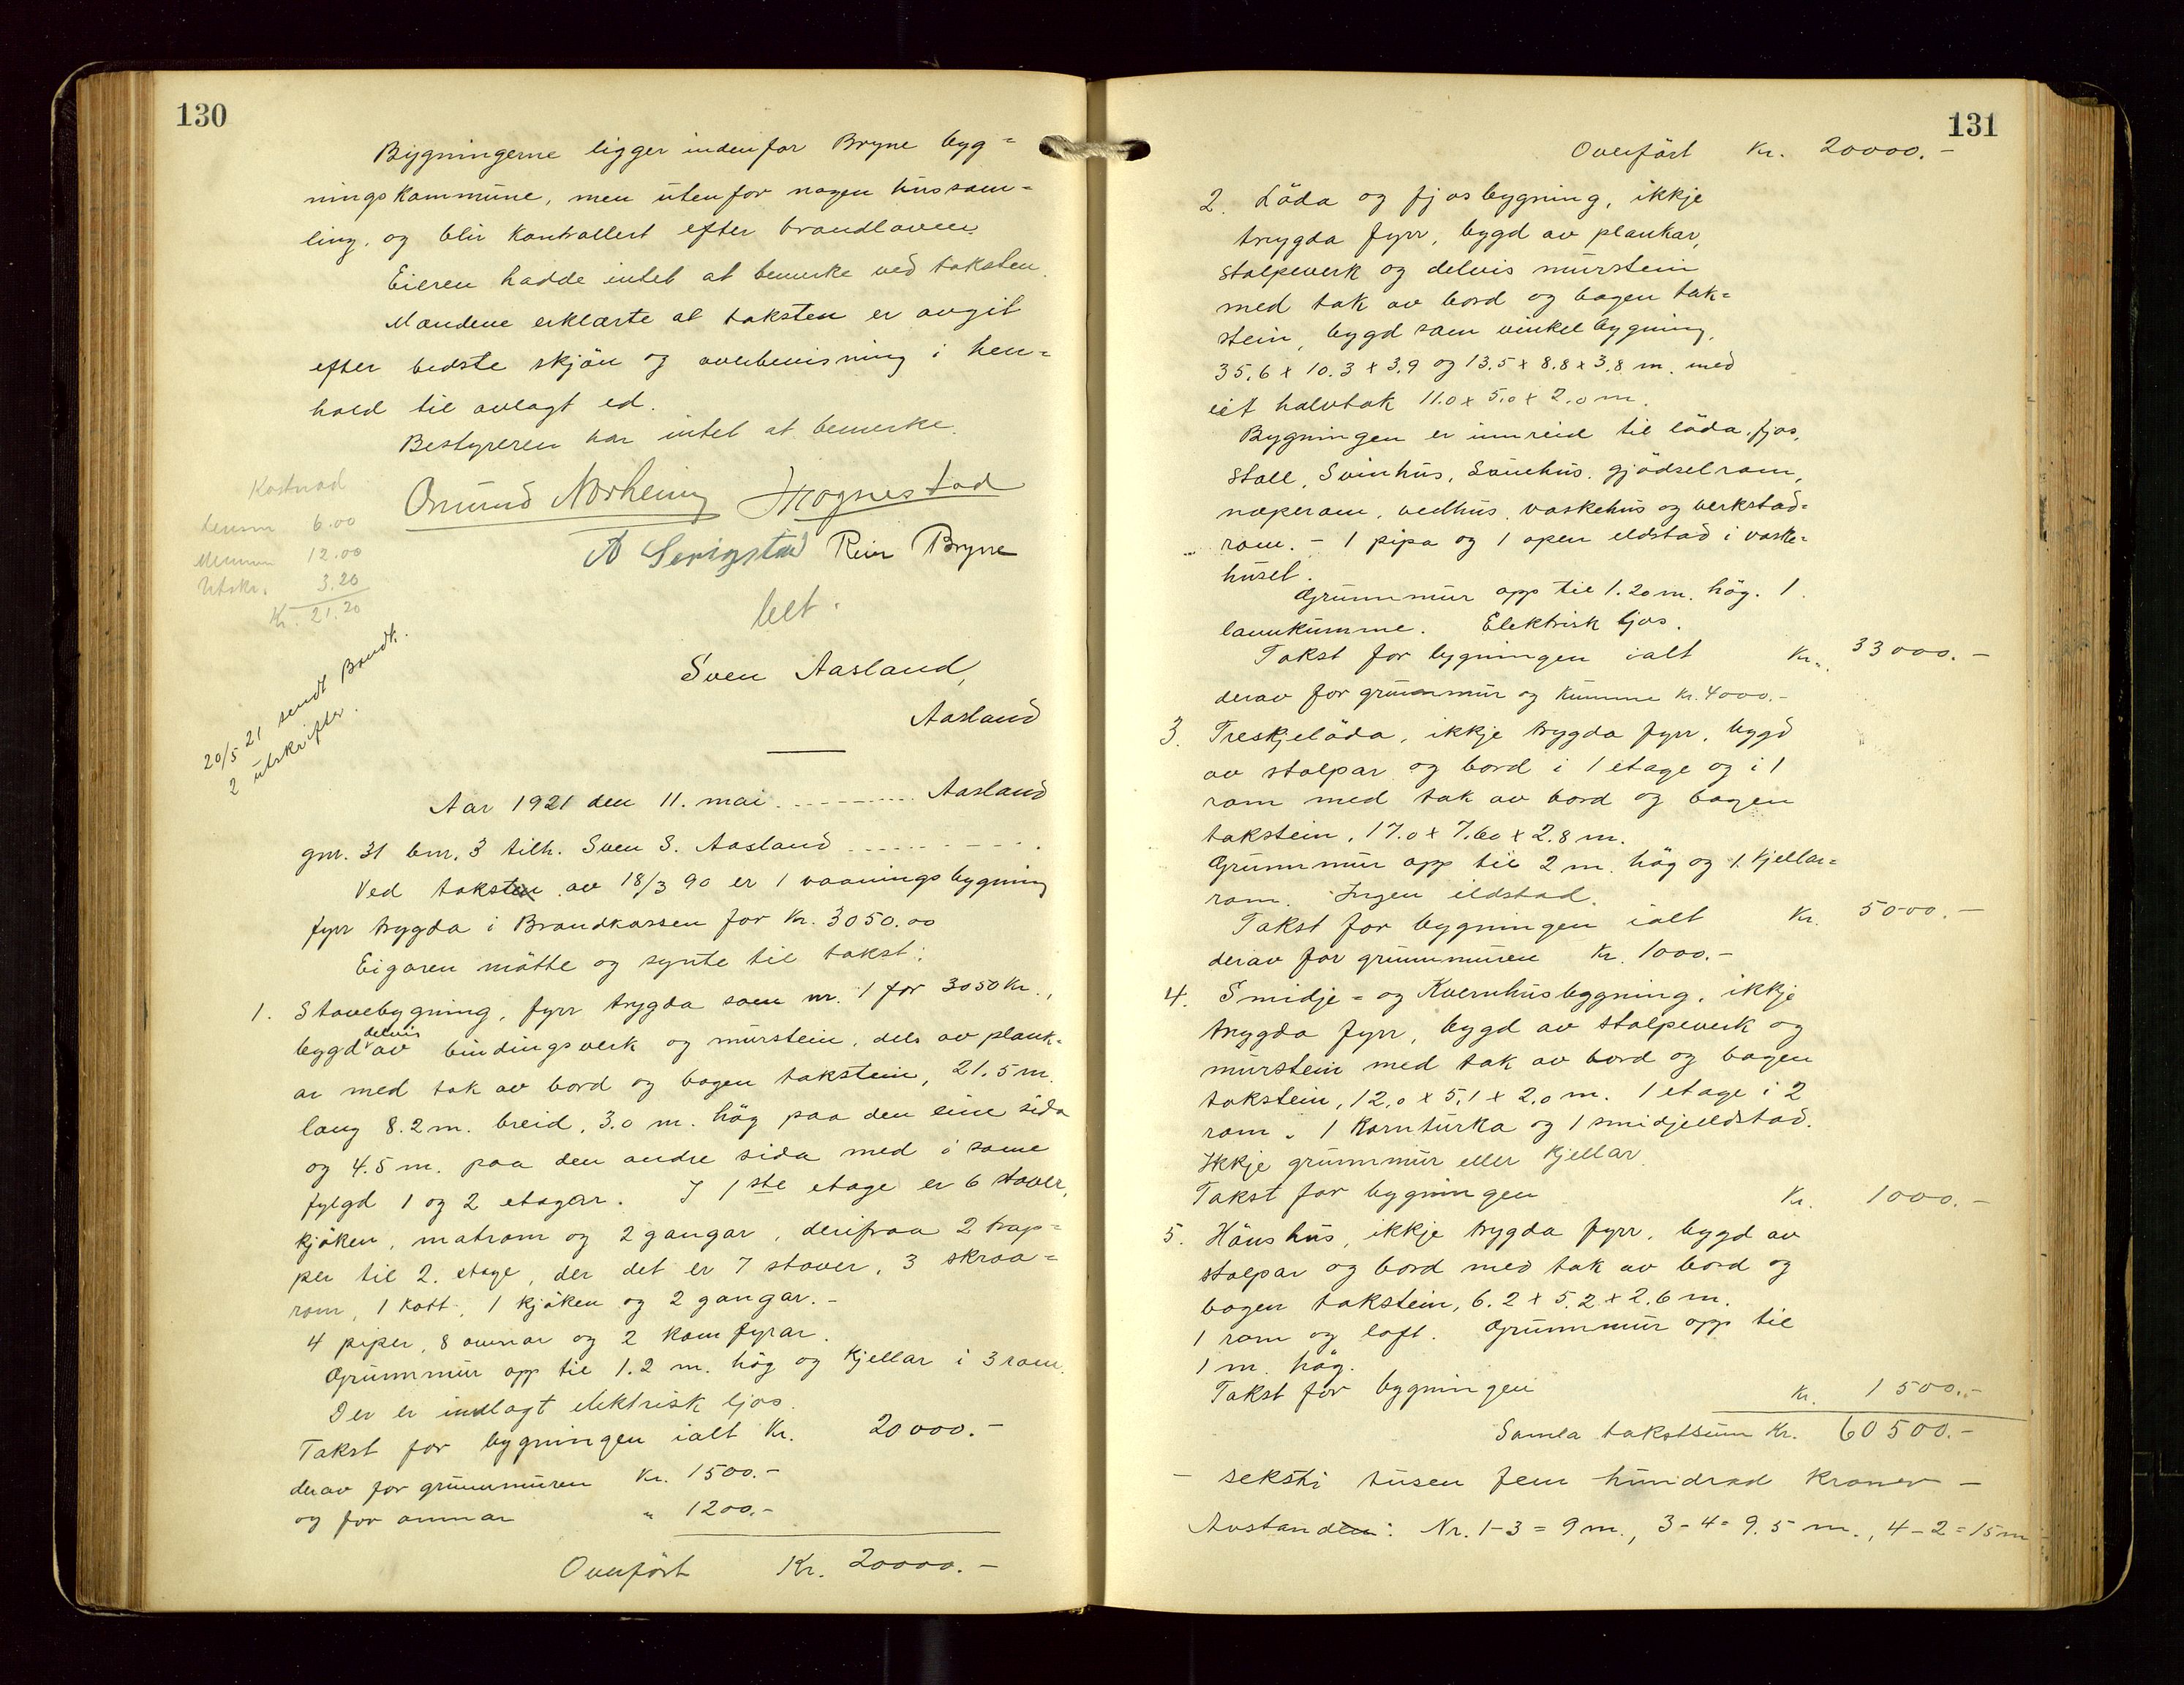 130
Bygningerne ligger indenfor Bryne byg=
ningskommune, men utenfor nogen hussam=
ling, og blir kontrollert efter brandloven.
Eieren hadde intet at bemerke ved taksten.
Mændene erklærte at taksten er avgit
efter bedste skjön og overbevisning i hen=
hold til avlagt ed.
Bestyreren har intet at bemerke.
Omund Norheim Hognestad
A Serigstad Rein Bryne
Kostnad
6.00
12.00
Utskr. 3.20
Kr. 21.20
20/5 21 sendt Brandk.
2 utskrifter.
Sven Aasland,
Aasland
Aar 1921 den 11. mai ............ Aasland
gnr. 31 bnr. 3 tilh. Sven S. Aasland ............
Ved taksten av 18/3 90 er 1 vaaningsbygning
fyrr trygda i Brandkassen for Kr. 3050.00
Eigaren mötte og synte til takst:
1. Stovebygning, fyrr trygda som nr. 1 for 3050 Kr.,
bygd delvis av bindingsverk og murstein, dels av plank=
ar med tak av bord og bogen takstein, 21.5 m.
lang 8.2 m. breid, 3.0 m. hög paa den eine sida
og 4.5 m. paa den andre sida med i same
fylgd 1 og 2 etagar. I 1ste etage er 6 stover,
kjöken, matrom og 2 gangar, derifraa 2 trap=
per til 2. etage, der det er 7 stover, 3 skraa=
rom, 1 kott, 1 kjöken og 2 gangar.-
4 piper, 8 omnar og 2 komfyrar.
Grunnmur opp til 1.2 m. hög og kjellar i 3 rom.
Der er indlagt elektrisk ljos.
Takst for bygningen ialt Kr. 20000.-
derav for grunnmuren Kr. 1500.-
og for omnar " 1200.-
Overfört Kr. 20000.-
131
Overfört Kr. 20000.-
2. Löda og fjosbygning, ikkje
trygda fyrr, bygd av plankar,
stolpeverk og delvis murstein
med tak av bord og bogen tak=
stein, bygd som vinkelbygning,
35.6 x 10.3 x 3.9 og 13.5 x 8.8 x 3.8 m. med
eit halvtak 11.0 x 5.0 x 2.0 m.
Bygningen er innreid til löda, fjos,
Stall, Svinhus, Sauehus, gjödselrom,
næperom, vedhus, vaskehus og verkstad=
rom. - 1 pipa og 1 open eldstad i vaske=
huset.
Grunnmur opp til 1.20 m. hög. 1
lannkumme. Elektrisk ljos.
Takst for bygningen ialt Kr. 33000.-
derav for grunnmur og kumme Kr. 4000.-
3. Treskjelöda, ikkje trygda fyrr, bygd
av stolpar og bord i 1 etage og i 1
rom med tak av bord og bogen
takstein, 17.0 x 7.60 x 2.8 m.
Grunnmur opp til 2 m. hög og 1 kjellar=
rom. Ingen eldstad.
Takst for bygningen ialt Kr. 5000.-
derav for grunnmuren Kr. 1000.-
4. Smidje= og Kvernhusbygning, ikkje
trygda fyrr, bygd av stolpeverk og
murstein med tak av bord og bogen
takstein, 12.0 x 5.1 x 2.0 m. 1 etage i 2
rom. 1 Kornturka og 1 smidjeeldstad.
Ikkje grunnmur eller kjellar.
Takst for bygningen Kr. 1000.-
5. Hönshus, ikkje trygda fyrr, bygd av
stolpar og bord med tak av bord og
bogen takstein, 6.2 x 5.2 x 2.6 m.
1 rom og loft. Grunnmur opp til
1 m. hög.
Takst for bygningen Kr. 1500.-
Samla takstsum Kr. 60500.-
- seksti tusen fem hundrad kroner -
Avstanden: Nr. 1-3 = 9 m., 3-4 = 9.5 m., 4-2 = 15 m